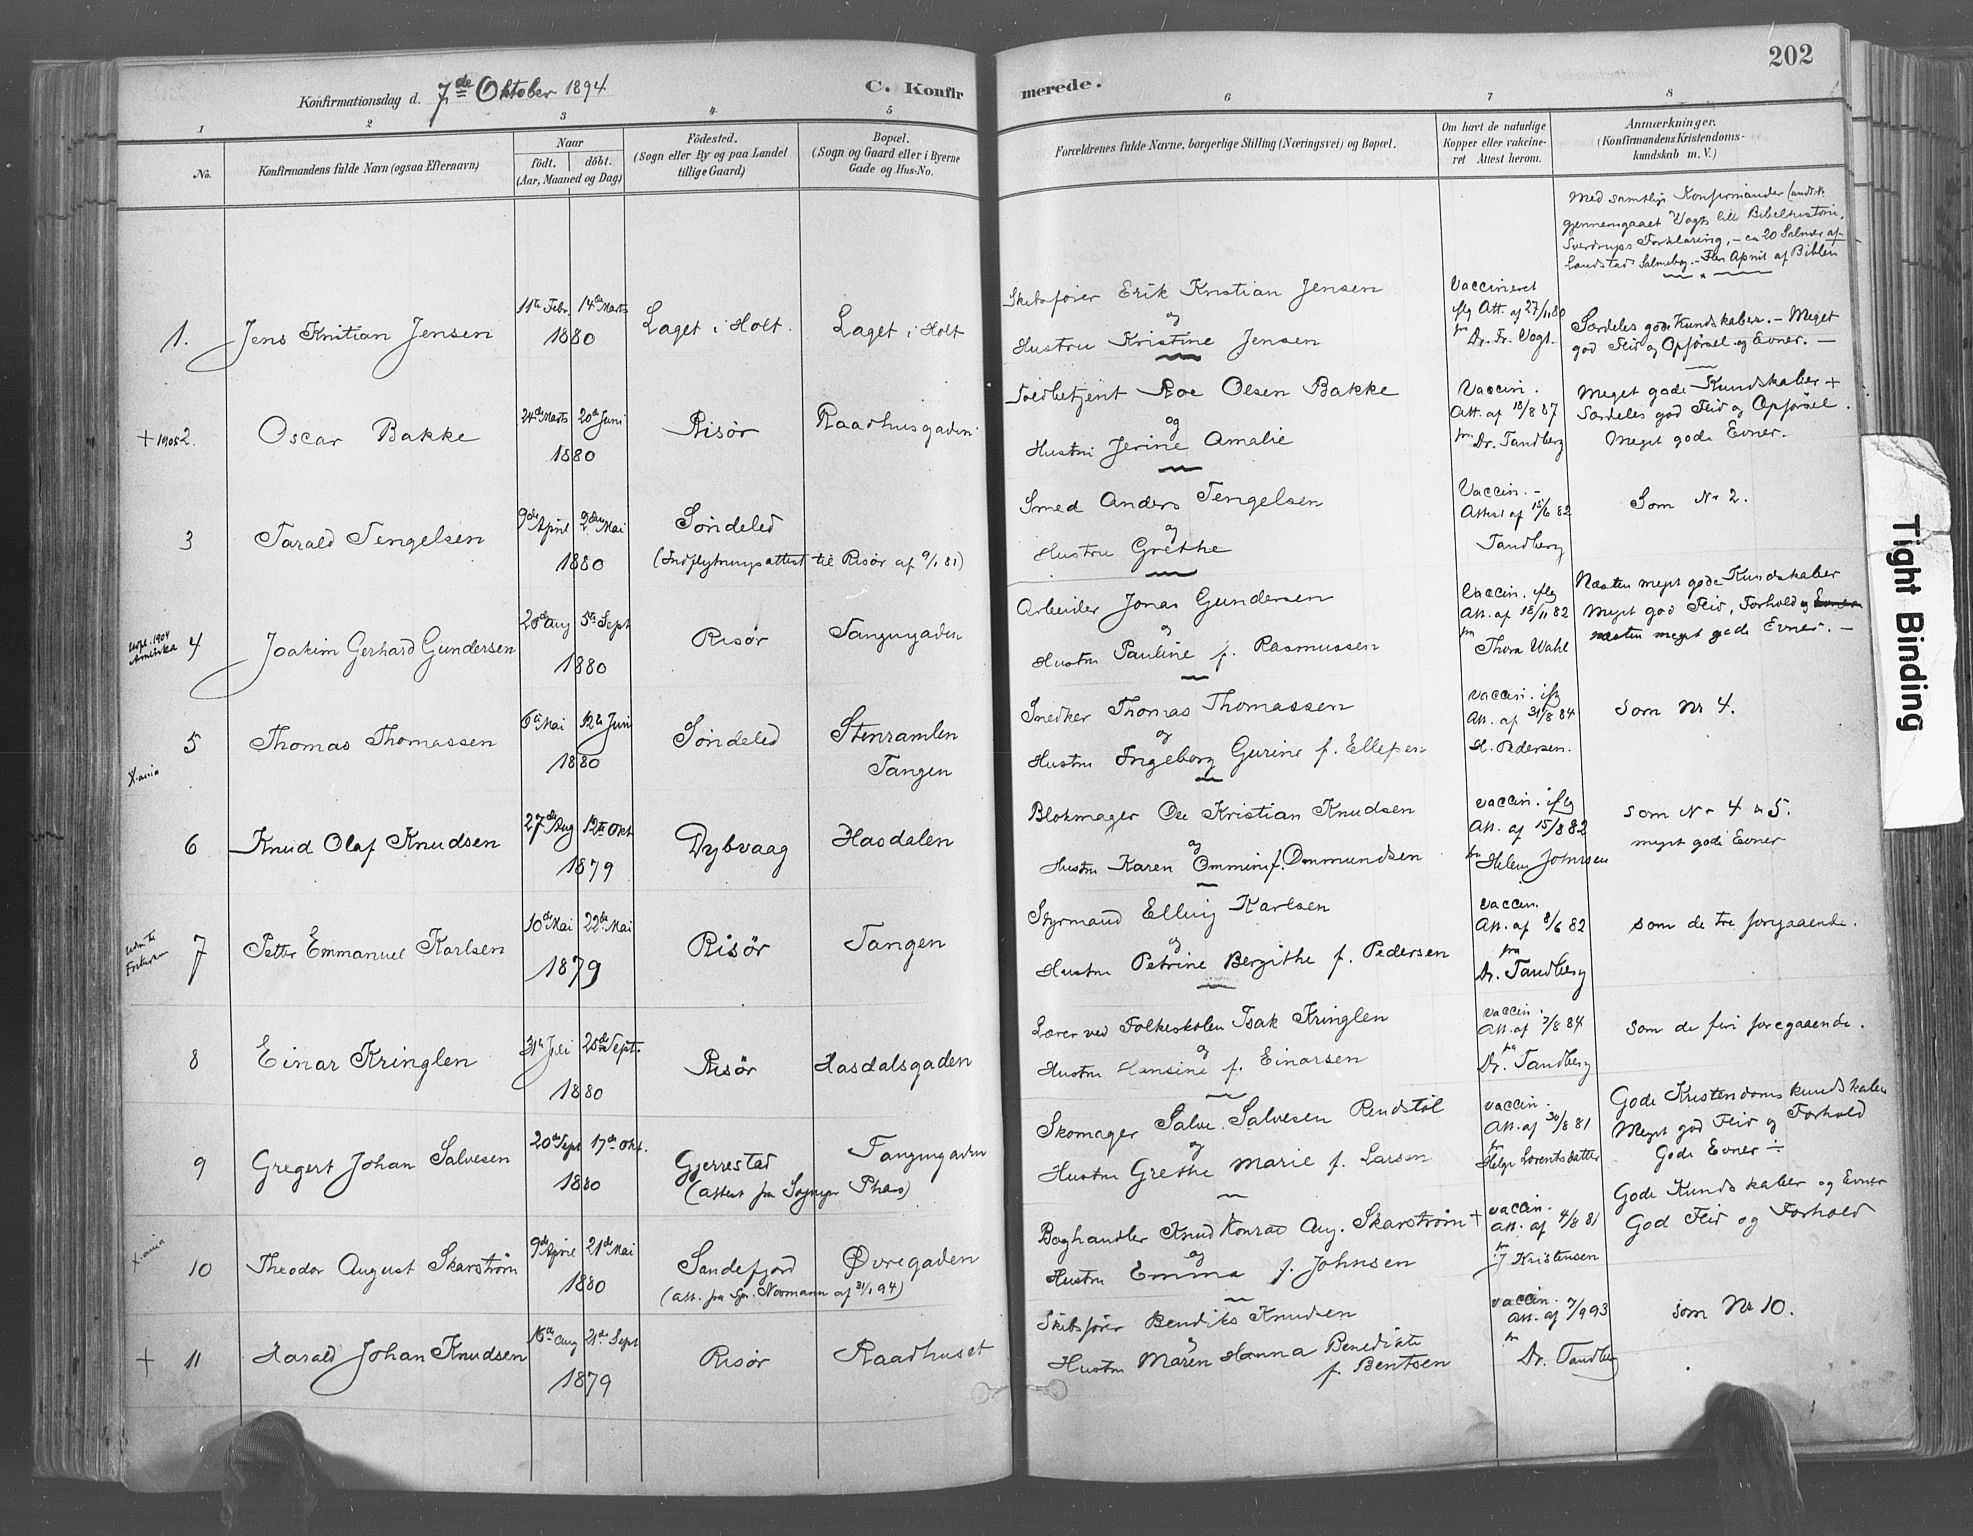 202
Konfirmationsdag d. 7de Oktober 1894
C. Konfirmerede.
1 2 3 4 5 6 7 8
No.
Konfirmandens fulde Navn (ogsaa Efternavn)
Naar
født. døbt.
(Aar, Maaned og Dag)
Fødested.
(Sogn eller By og paa Landet
tillige Gaard)
Bopæl.
(Sogn og Gaard eller i Byerne
Gade og Hus-No.
Forældrenes fulde Navne, borgerlige Stilling (Næringsvei) og Bopæl.
Om havt de naturlige
Kopper eller vaccine-
ret Attest herom.
Anmærkninger.
(Konfirmandens Kristendoms-
kundskab m. V.)
Med samtlige Konfirmander
gjennemgaaet Vogts lill Bibelhistorie,
Sverdrups Forklaring, - ca 20 Salmer af
Landstads Salmebog. - af Bibelen
1. Jens Kristian Jensen
11te Febr. 14de Marts
1880
Laget i Holt. Laget i Holt
Skibsfører Erik Kristian Jensen
og
Hustru Kristine Jensen
Vaccineret
iflg Att. af 27/11 80
fra Dr. Fr. Vogt.
Særdeles gode Kundskaber. - Meget
god Flid og Opførsel og Evner. -
+ 1905 2. Oscar Bakke
24de Marts 20de Juni
1880
Risør Raadhusgaden
Toldbetjent Roe Olsen Bakke
og
Hustru Jerine Amalie
Vaccin.
Att. af 18/8 87
fra Dr. Tandberg
Meget gode Kundskaber +
Særdeles god Flid og Opførsel.
Meget gode Evner.
3 Tarald Tengelsen
9de April 2den Mai
1880
Søndeled
(Indflytningsattest til Risør af 9/1 81)
Smed Anders Tengelsen
og
Hustru Grethe
Vaccin. -
Attest af 15/6 82
Tandberg
Som Nr 2.
1904
Amerika
4 Joakim Gerhard Gundersen
20de Aug 5te Sept
1880
Risør Tangengaden
Arbeider Jonas Gundersen
og
Hustru Pauline f. Rasmussen
Vaccin. iflg
Att. af 18/11 82
fra Thora Wahl
Næsten meget gode Kundskaber
Meget god Flid, Forhold og Evner
næsten meget gode Evner. -
5 Thomas Thomassen
X.ania
6te Mai 12te Juni
1880
Søndeled Stenramlen
Tangen
Snedker Thomas Thomassen
og
Hustru Ingeborg Gurine f. Ellefsen
vaccin. iflg
Att. af 31/8 84
H. Pedersen.
Som Nr 4.
6 Knud Olaf Knudsen
27de Aug 12te Okt
1879
Dybvaag Hasdalen
Blokmager Ole Kristian Knudsen
og
Hustru Karen Ommine f. Ommundsen
vaccin. iflg
Att. af 15/8 82
fra Helene Johnsen
Som Nr 4 & 5.
meget gode Evner
7 Petter Emmanuel Karlsen
10de Mai 22de Mai
1879
Risør Tangen
Styrmand Elling Karlsen
og
Hustru Petrine Bergithe f. Pedersen
vaccin.
Att. af 8/6 82
fra
Dr. Tandberg
Som de tre foregaaende.
8 Einar Kringlen
31te Juli 25de Sept.
1880
Risør Hasdalsgaden
Lærer ved Folkeskolen Isak Kringlen
og
Hustru Hansine f. Einarsen
vaccin.
Att. af 7/8 84
fra
Dr. Tandberg
Som de fire foregaaende.
9 Gregert Johan Salvesen
20de Sept 17de Okt.
1880
Gjerrestad Tangengaden
(attest fra Sognepr Thaas)
Skomager Salve Salvesen Rendstøl
og
Hustru Grethe Marie f. Larsen
vaccin.
Att. af 30/8 81
fra
Helge Lorentsdatter
Gode Kristendomskundskaber
Meget god Flid og Forhold
Gode Evner ÷
X.ania
10 Theodor August Skarstrøm
9de April 21de Mai
1880
Sandefjord Øvregaden
(Att. fra Spr. Normann af 31/1 94)
Boghandler Knud Konrad Aug. Skarstrøm +
og
Hustru Emma f. Johnsen
vaccin.
Att. af 4/8 81
fra
J Kristensen
Gode Kundskaber og Evner
God Flid og Forhold
+ 11 Harald Johan Knudsen
16de Aug 21de Sept
1879
Risør Raadhuset
Skibsfører Bendiks Knudsen
og
Hustru Maren Hanna Benedikte
f. Bentsen
vaccin.
Att. af 7/9 93
fra
Dr. Tandberg
Som Nr 10.
Tight Binding